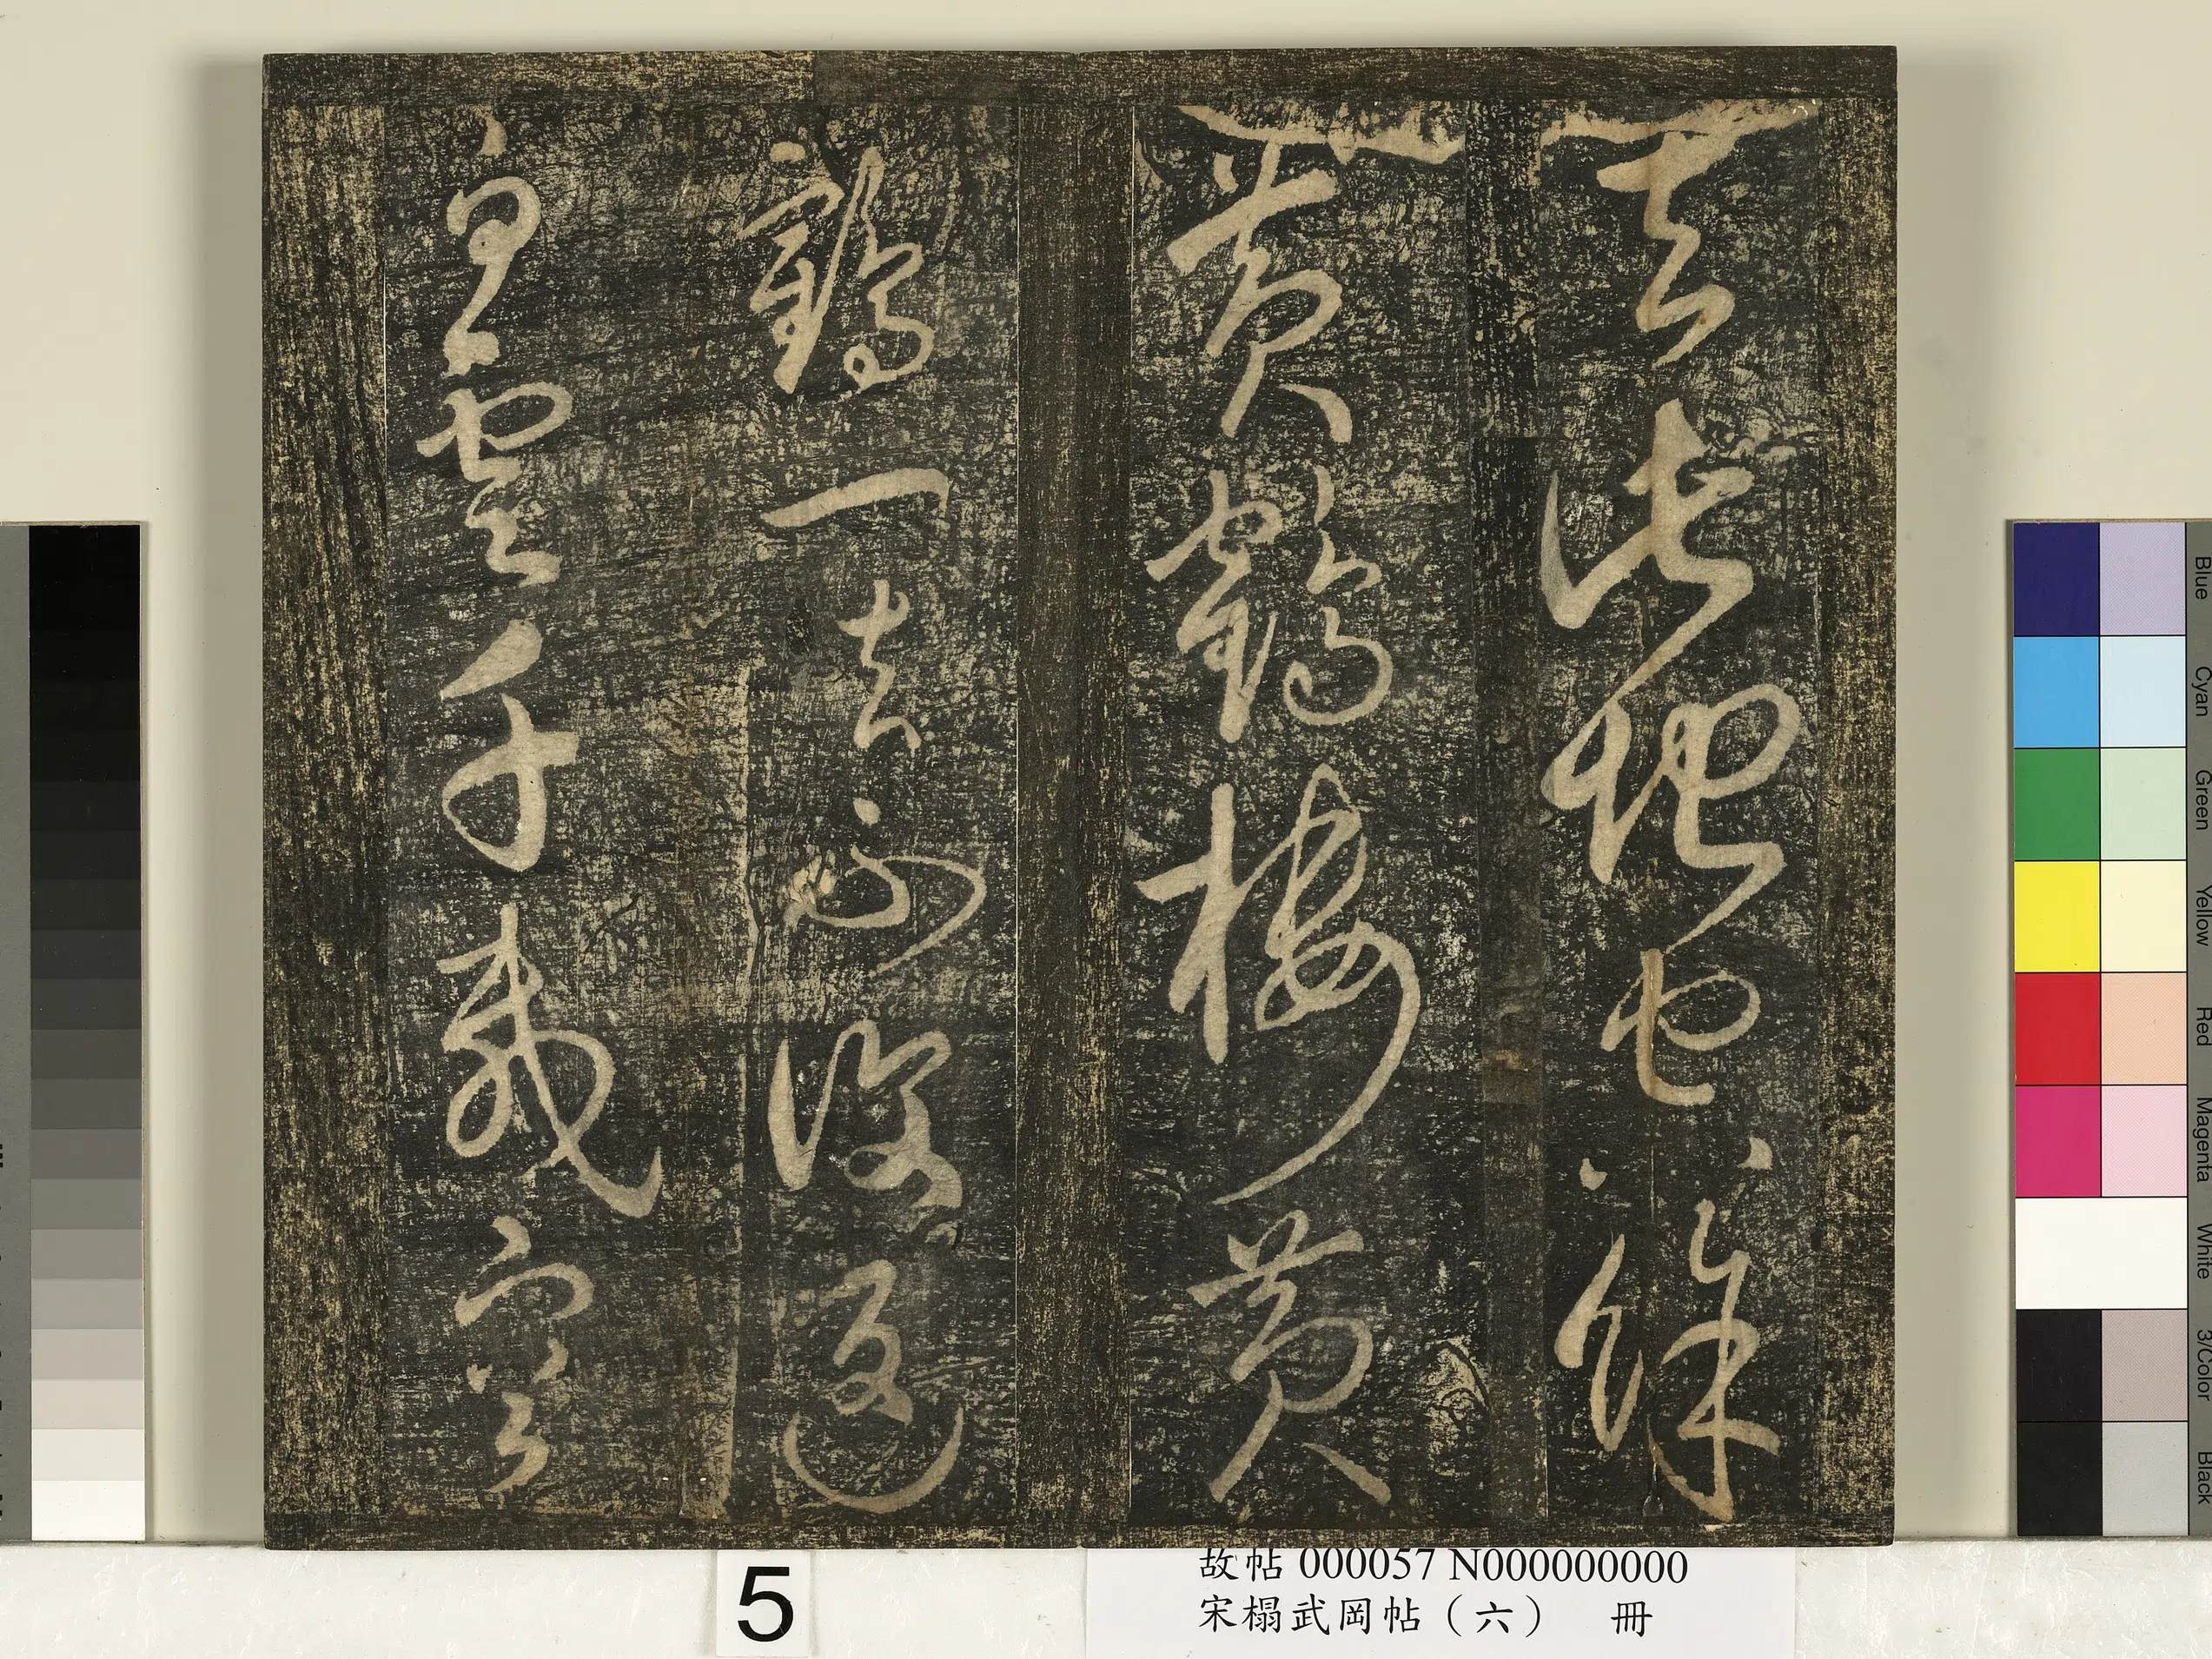 去此地空餘
黃鶴樓黃
鶴一去不復返
白雲千載空
5
故帖 000057 N000000000
宋榻武岡帖（六） 冊
Blue
Cyan
Green
Yellow
Red
Magenta
White
3/Color
Black